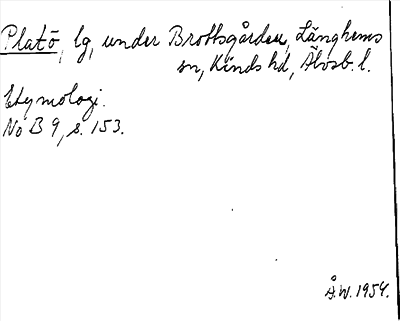 Platō, lg, under Brottsgården, Länghems
sn, Kinds hd, Älvsb. l.
Etymologi.
No B 9, s. 153.
Å.W. 1954.